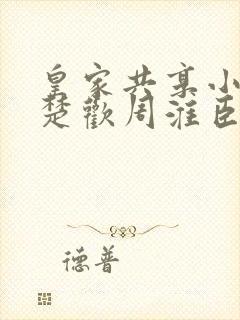 皇家共享小
楚歡周淮臣
德普